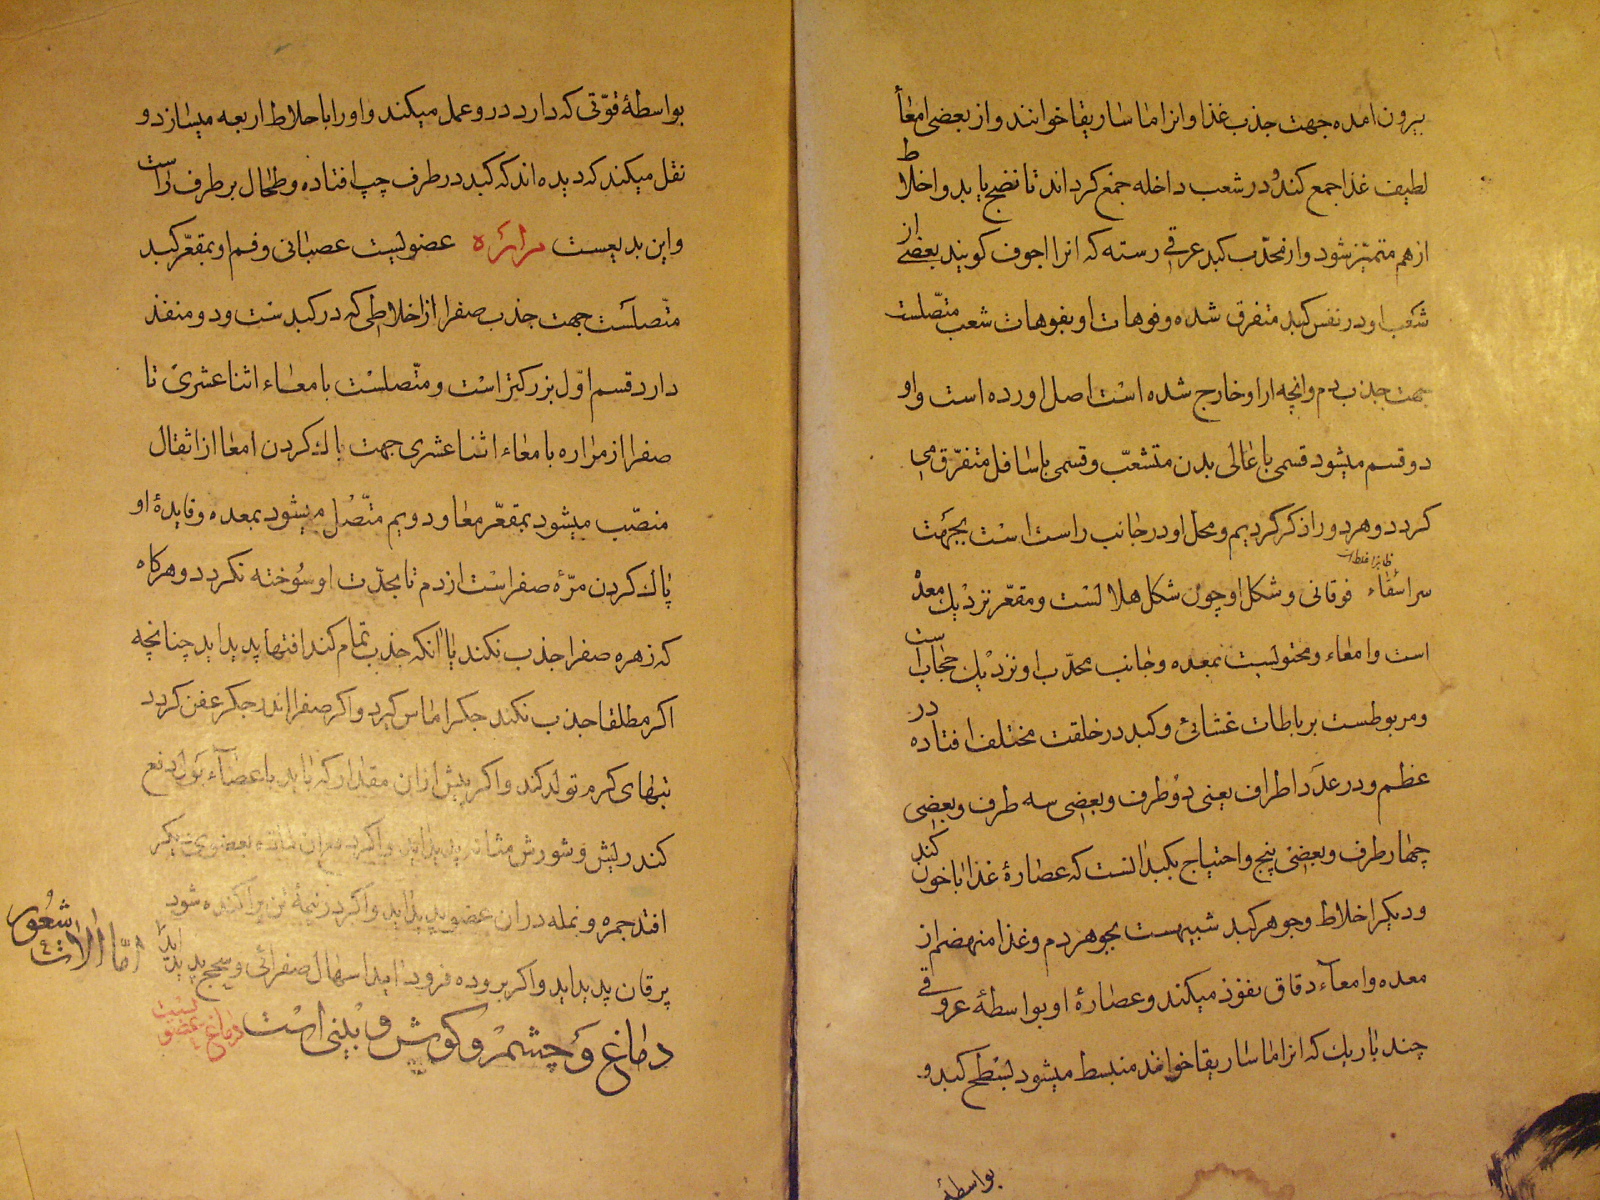 بیرون امده جهت جذب غذا و انرا ماساریقا خوانند و از بعضی امعأ
لطیف غذا جمع کند و در شعب داخله جمع کرداند تا نضج یابد و اخلاط
از هم متمیّز شود و از محدّب کبد عرقی رسته که انرا اجوف کویند بعضی از
شعب او در نفس کبد متفرق شده و فوهات او بفوهات شعب متّصلست
جهت جذب دم و انچه از او خارج شده است اصل اورده است و او
دو قسم میشود قسمی باعالی بدن متشعّب و قسمی باسافل متفرّق می
کردد و هر دو را ذکر کردیم و محل او در جانب راست است بجهت
ظاهرا غلط است
سراسفاء فوقانی و شکل او چون شکل هلالست و مقعّر نزدیك معدۀ
است و امعاء و محتویست بمعده و جانب محدّب او نزدیك حجاب است
و مربوطست برباطات غشائی و کبد در خلقت مختلف افتاده در
عظم و در عدد اطراف یعنی دو طرف و بعضی سه طرف و بعضی
چهار طرف و بعضی پنج و احتیاج بکبد انست که عصارۀ غذا با خون کند
و دیکر اخلاط و جوهر کبد شبیهست بجوهر دم و غذا منهضم از
معده و امعآء دقاق نفوذ میکند و عصارۀ او بواسطۀ عروقی
چند باریك که انرا ماساریقا خوانند منبسط میشود بسطح کبد و
بواسطۀ
بواسطۀ قوّتی که دارد درو عمل میکند و او را باخلاط اربعه میسازد و
نقل میکند که دیده اند که کبد در طرف چپ افتاده و طحال بر طرف راست
و این بدیعست مراره عضویست عصبانی و فم او بمقعّر کبد
متصلست جهت جذب صفرا از اخلاطی که در کبدست و دو منفذ
دارد قسم اوّل بزرکتر است و متّصلست با معاء اثنا عشری تا
صفرا از مراره بامعاء اثنا عشری جهت پاك کردن امعا از اثقال
منصّب میشود بمقعّر معا و دویم متّصل میشود بمعده و فایدۀ او
پاك کردن مرّۀ صفراست از دم تا بحدّت او سُوخته نکردد و هرکاه
که زهره صفرا جذب نکند یا انکه جذب تمام کند افتها پدید اید چنانچه
اکر مطلقا جذب نکند جکر اماس کیرد و اکر صفرا اندر جکر عفن کردد
تبهای کرم تولد کند و اکر بیش از ان مقدار که باید باعضآء بول دفع
کند ریش و شورش مثانه پدید اید و اکر
افتد جمره و نمله در ان عضو پدید اید و اکر در همۀ تن پراکنده شود
یرقان پدید اید و اکر بروده فرود اید اسهال صفرائی و سحج پدید اید
امّا الات شعور
دماغ و چشم و کوش و بینی است دماغ عضویست